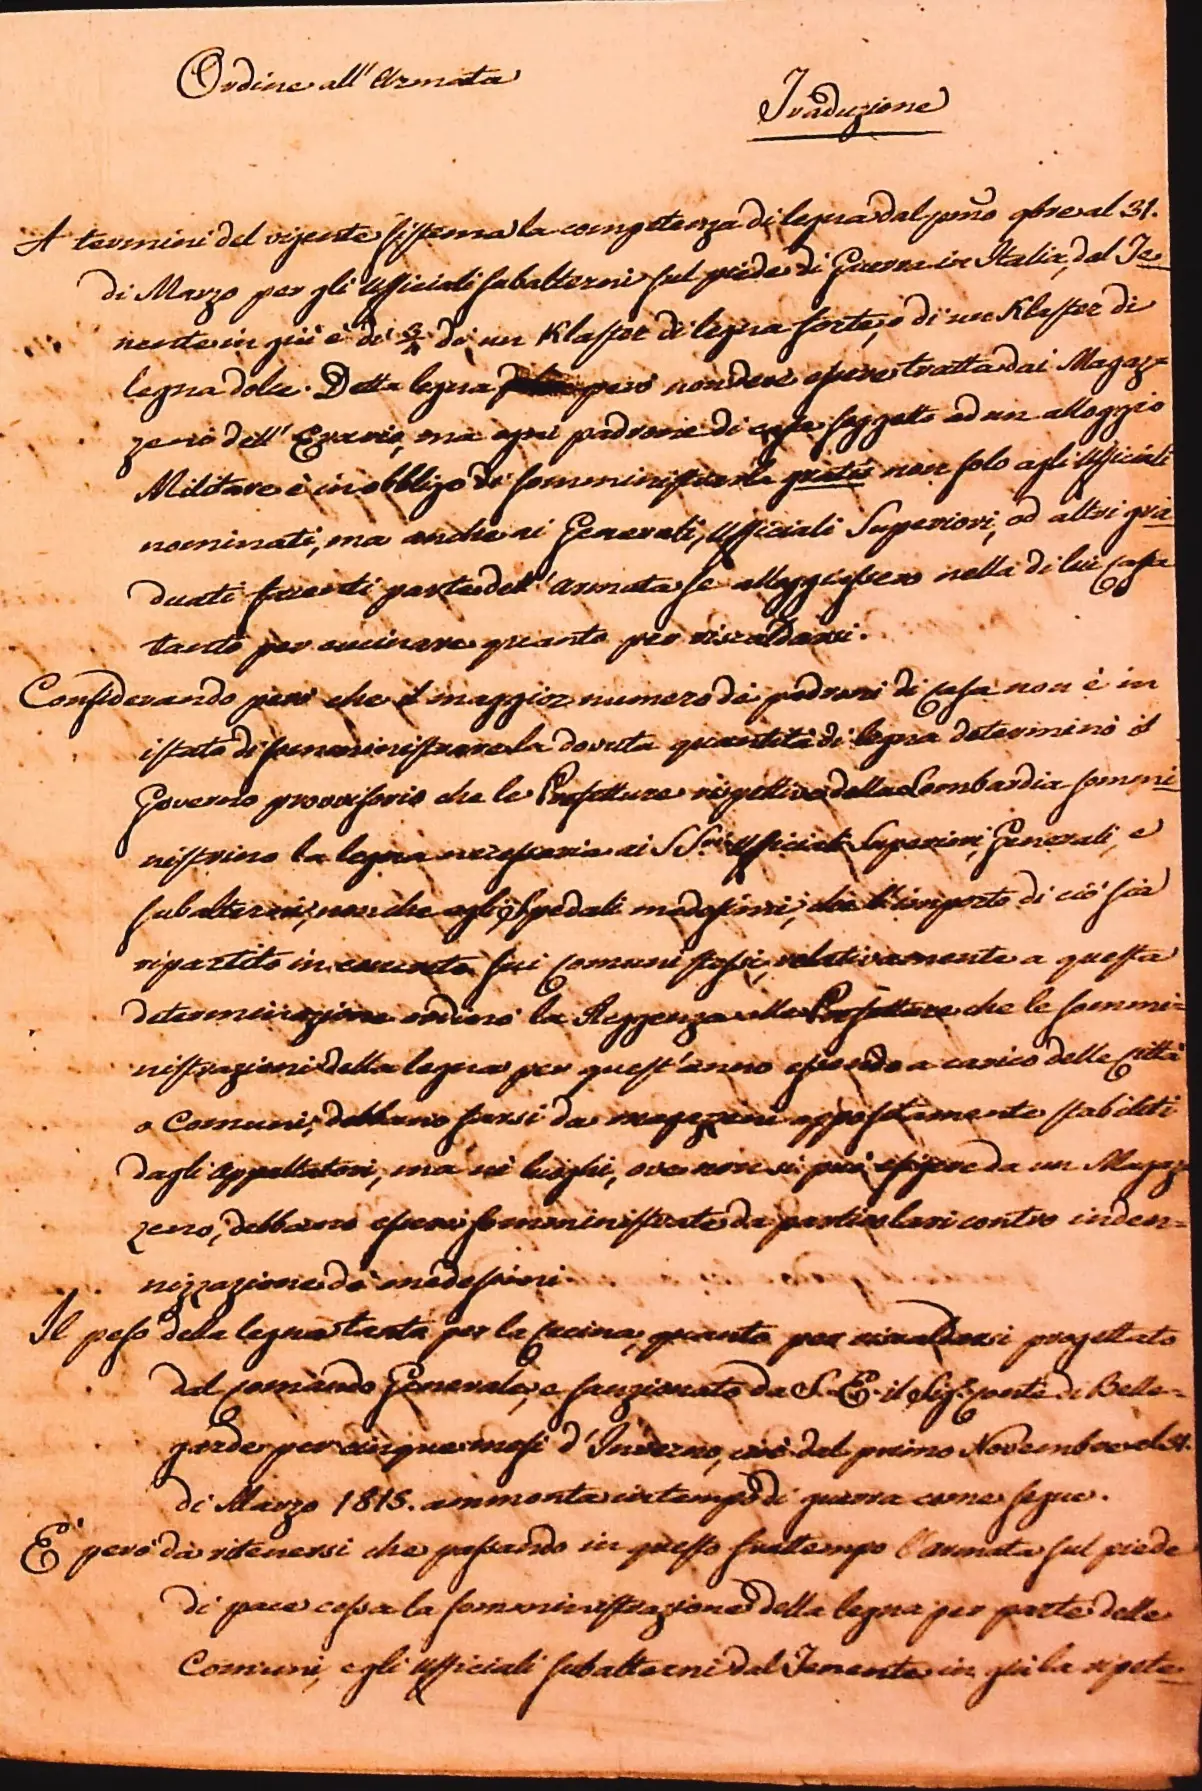 Ordine all'Armata
Traduzione
A termini del vigente sistema la competenza di legna dal pmo 9bre al 31.
di Marzo per gli Ufficiali subalterni sul piede di Guerra in Italia, dal Te¬
nente in giù è di 3/4 di un Klaster di legna forte, o di un Klaster di
legna dolce. Detta legna però non deve essere tratta dai Magaz¬
zeni dell' Erario, ma ogni padrone di casa soggetto ad un alloggio
Militare è in obbligo di somministrarla gratis non solo agli Ufficiali
nominati, ma anche ai Generali, Ufficiali Superiori, od altri gra¬
duati facenti parte dell' armata se alloggiassero nella di lui Casa
tanto per cucinare quanto per riscaldarsi.
Considerando però che il maggior numero de padroni di Casa non è in
istato di somministrare la dovuta quantità di legna determinò il
Governo provvisorio che le Prefetture rispettive della Lombardia sommi¬
nistrino la legna necessaria ai SSri Ufficiali Superiori, Generali, e
subalterni, nonchè agli Ospedali medesimi, che l'importo di ciò sia
ripartito in concreto sui Comuni stessi, relativamente a questa
determinazione ordinò la Reggenza alle Prefetture che le sommi¬
nistrazioni della legna per quest'anno essendo a carico delle Città
o Comuni, debbano farsi da magazeni appositamente stabiliti
dagli appaltatori, ma ne' luoghi, ove non si può esigere da un Magaz¬
zeno, debbano essere somministrate da particolari contro inden¬
nizzazione de' medesimi.
Il peso della legna tanto per la Cucina, quanto per riscaldarsi progettato
dal Comando Generale, e sanzionato da S. E. il Sigr Conte di Belle¬
garde per cinque mesi d'Inverno, cioè dal primo Novembre al 31.
di Marzo 1815. ammonta in tempo di guerra come segue.
E' però da ritenersi che passando in questo frattempo l'armata sul piede
di pace cessa la somministrazione della legna per parte delle
Comuni, e gli Ufficiali subalterni dal Tenente in giù la ripete¬